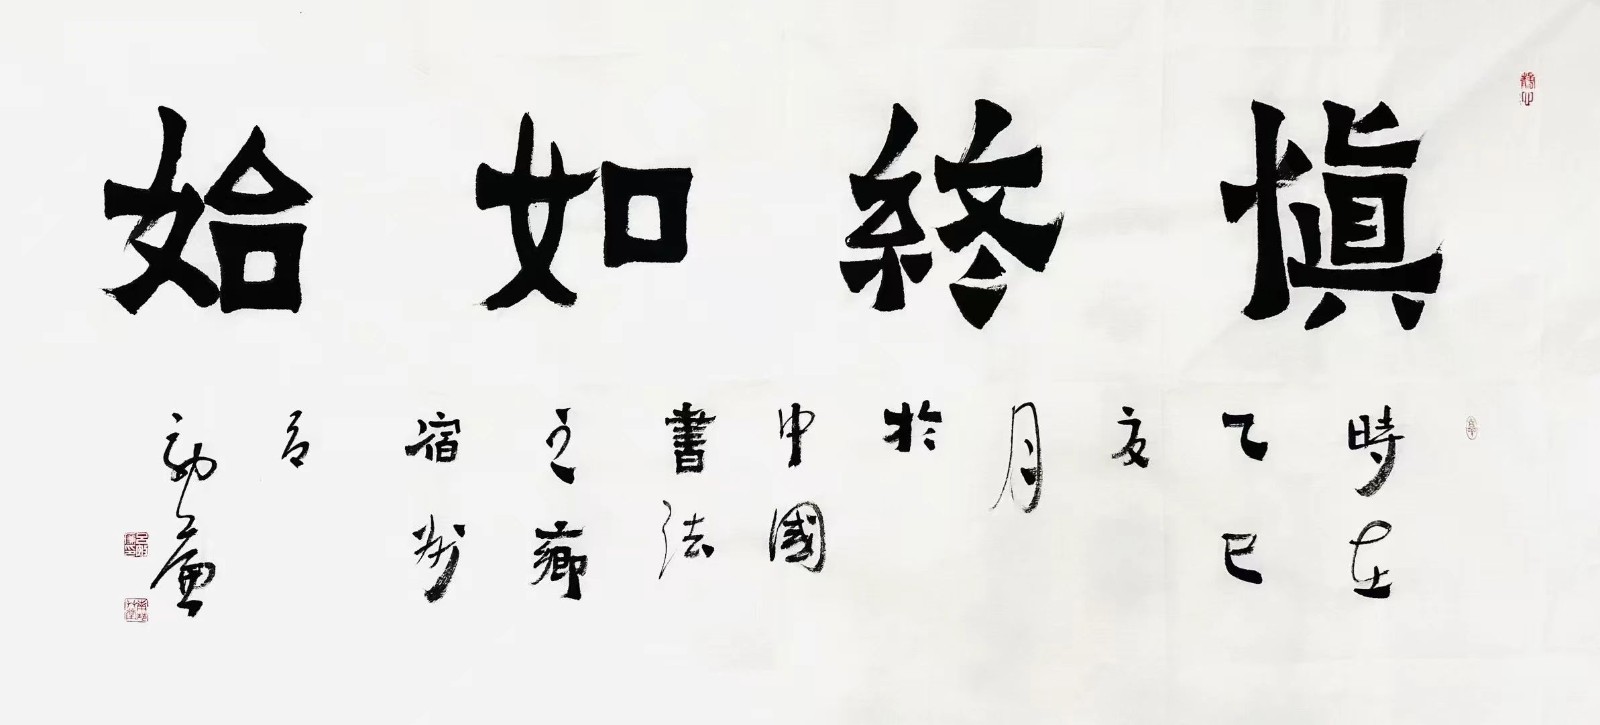 愼終如始
時在
乙巳
亥
月
於
中國
書法
之鄉
宿州